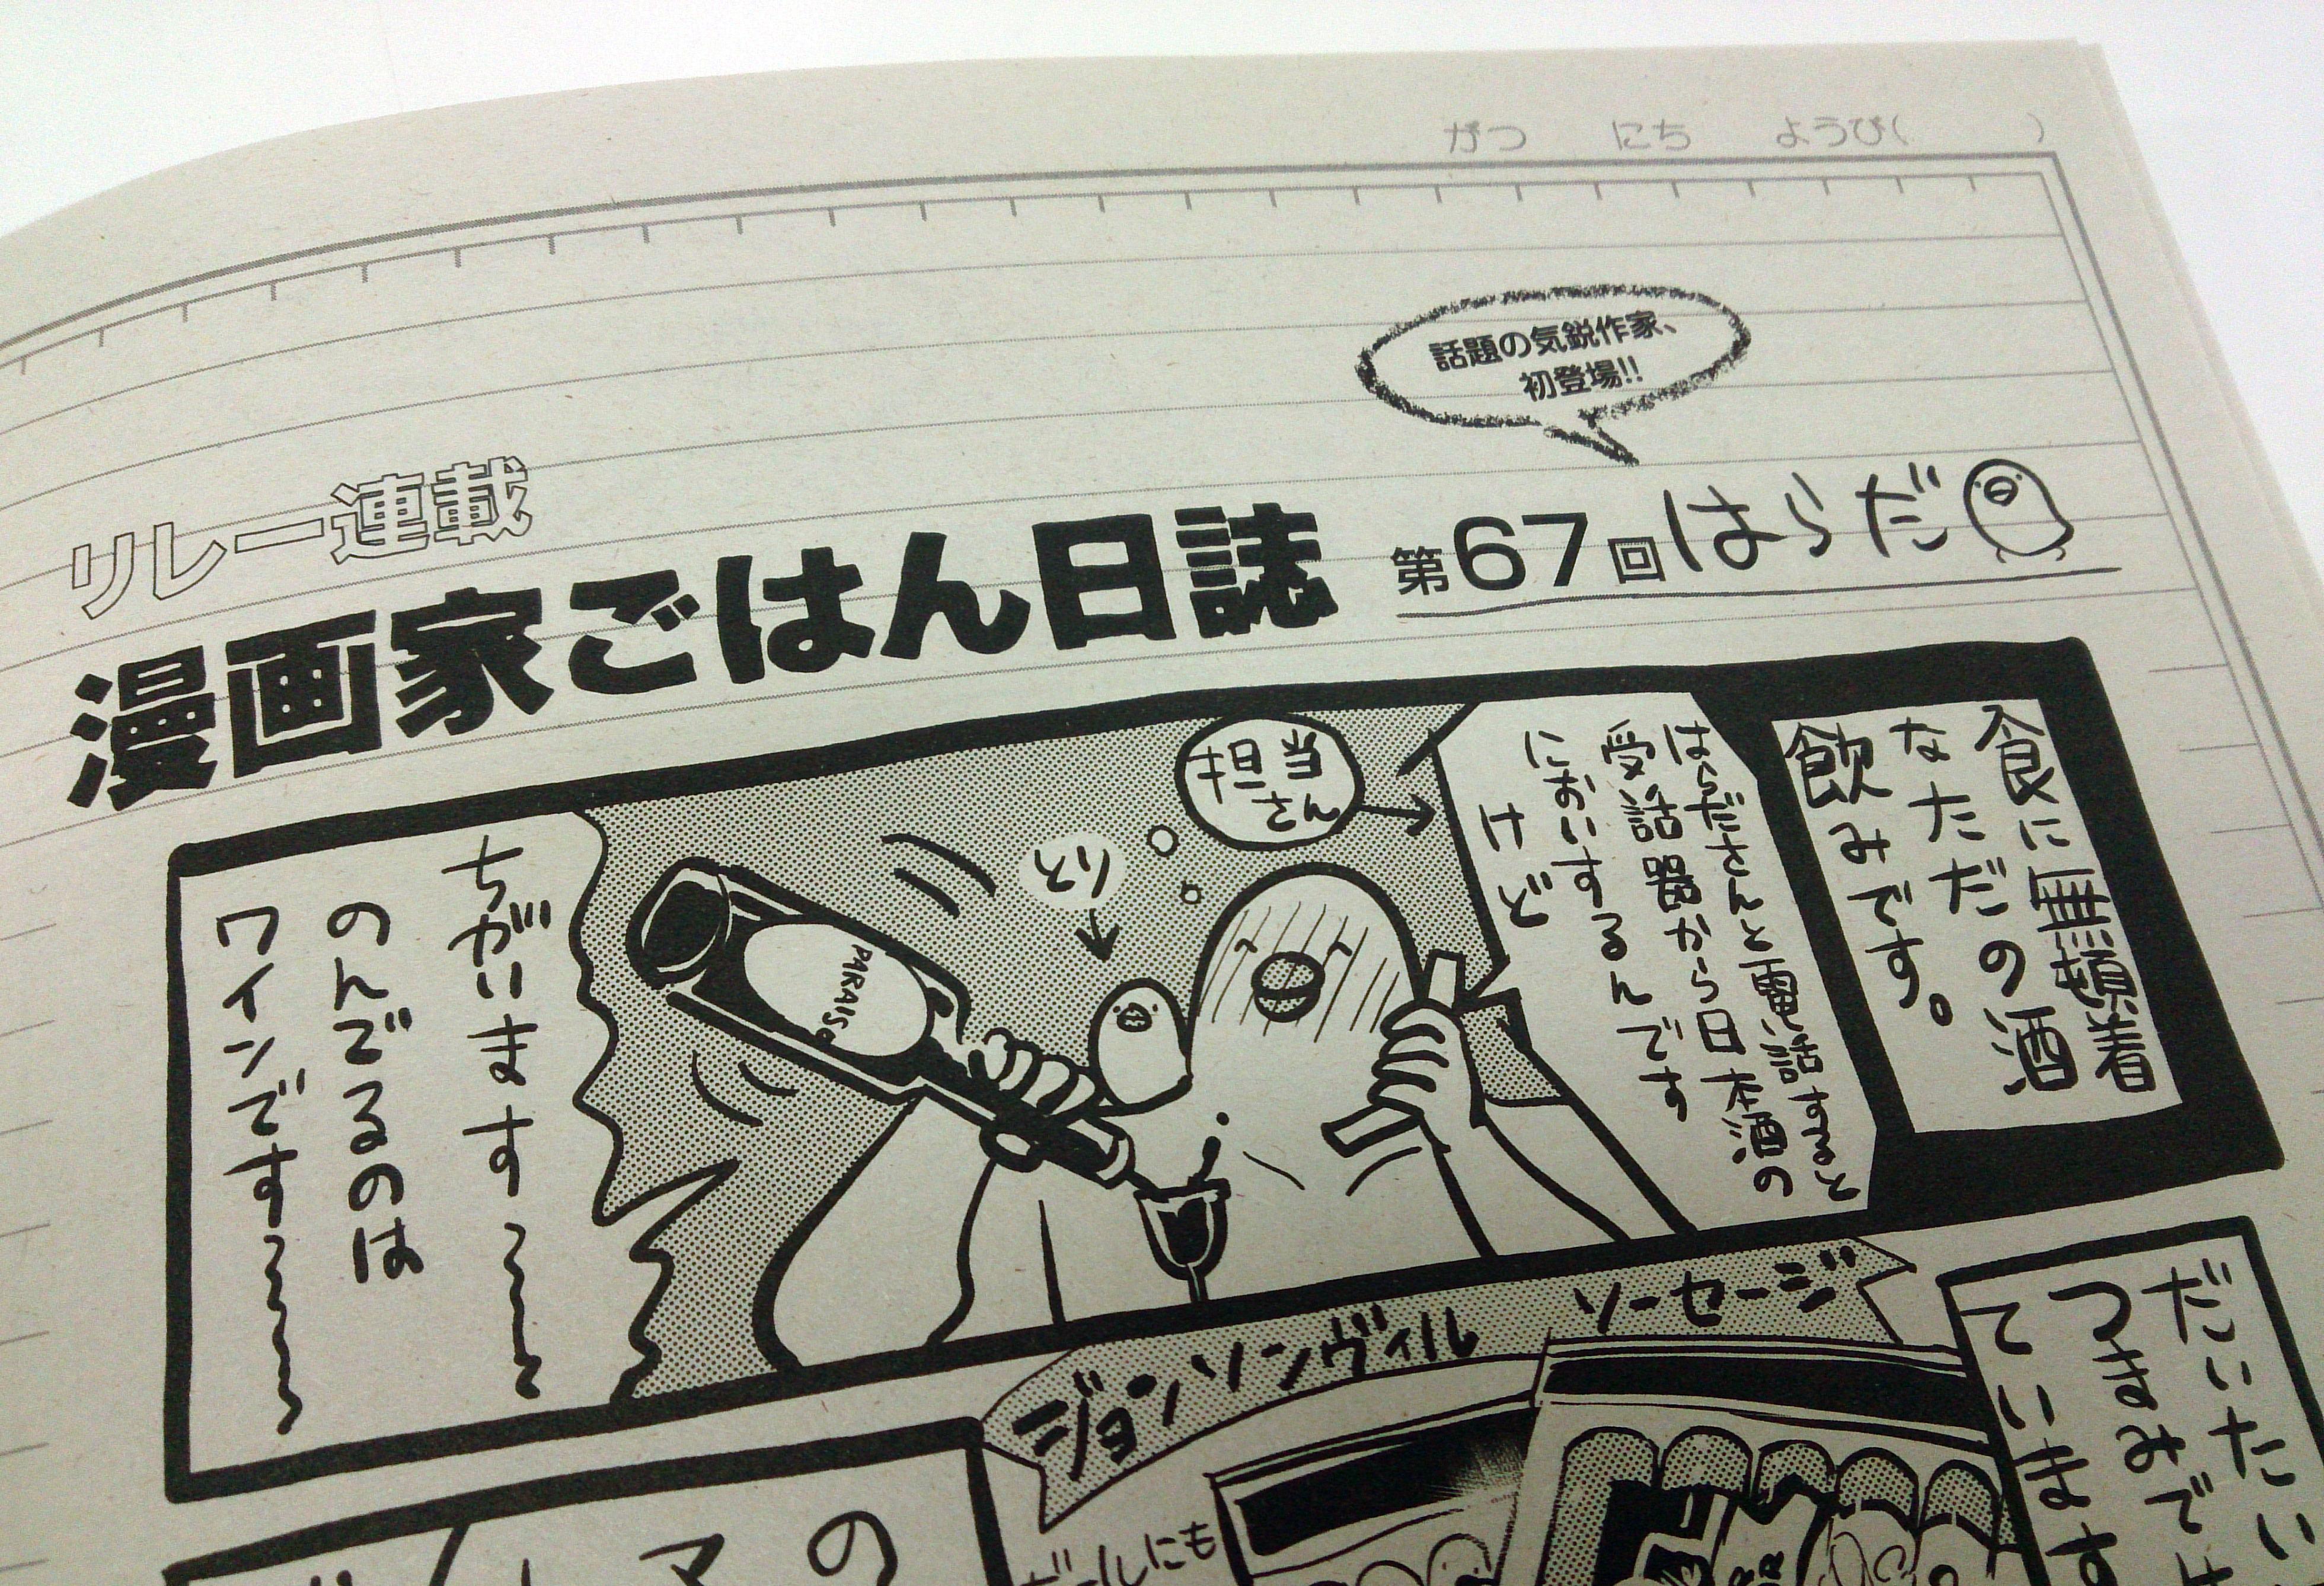 がつ にち ようび( )
話題の気鋭作家、
初登場!!
リレー連載
漫画家ごはん日誌
第67回 はらだ
食に無頓着
なただの酒
飲みです。
はらだせんと電話すると
受話器から日本酒の
においするんです
けど
当
担さん
とり
PARAISO
ちがいます〜〜
のんでるのは
ワインです〜〜〜
だいたい
つまみで
ています
ジョンソンヴィル ソーセージ
ビールにも
の
マ